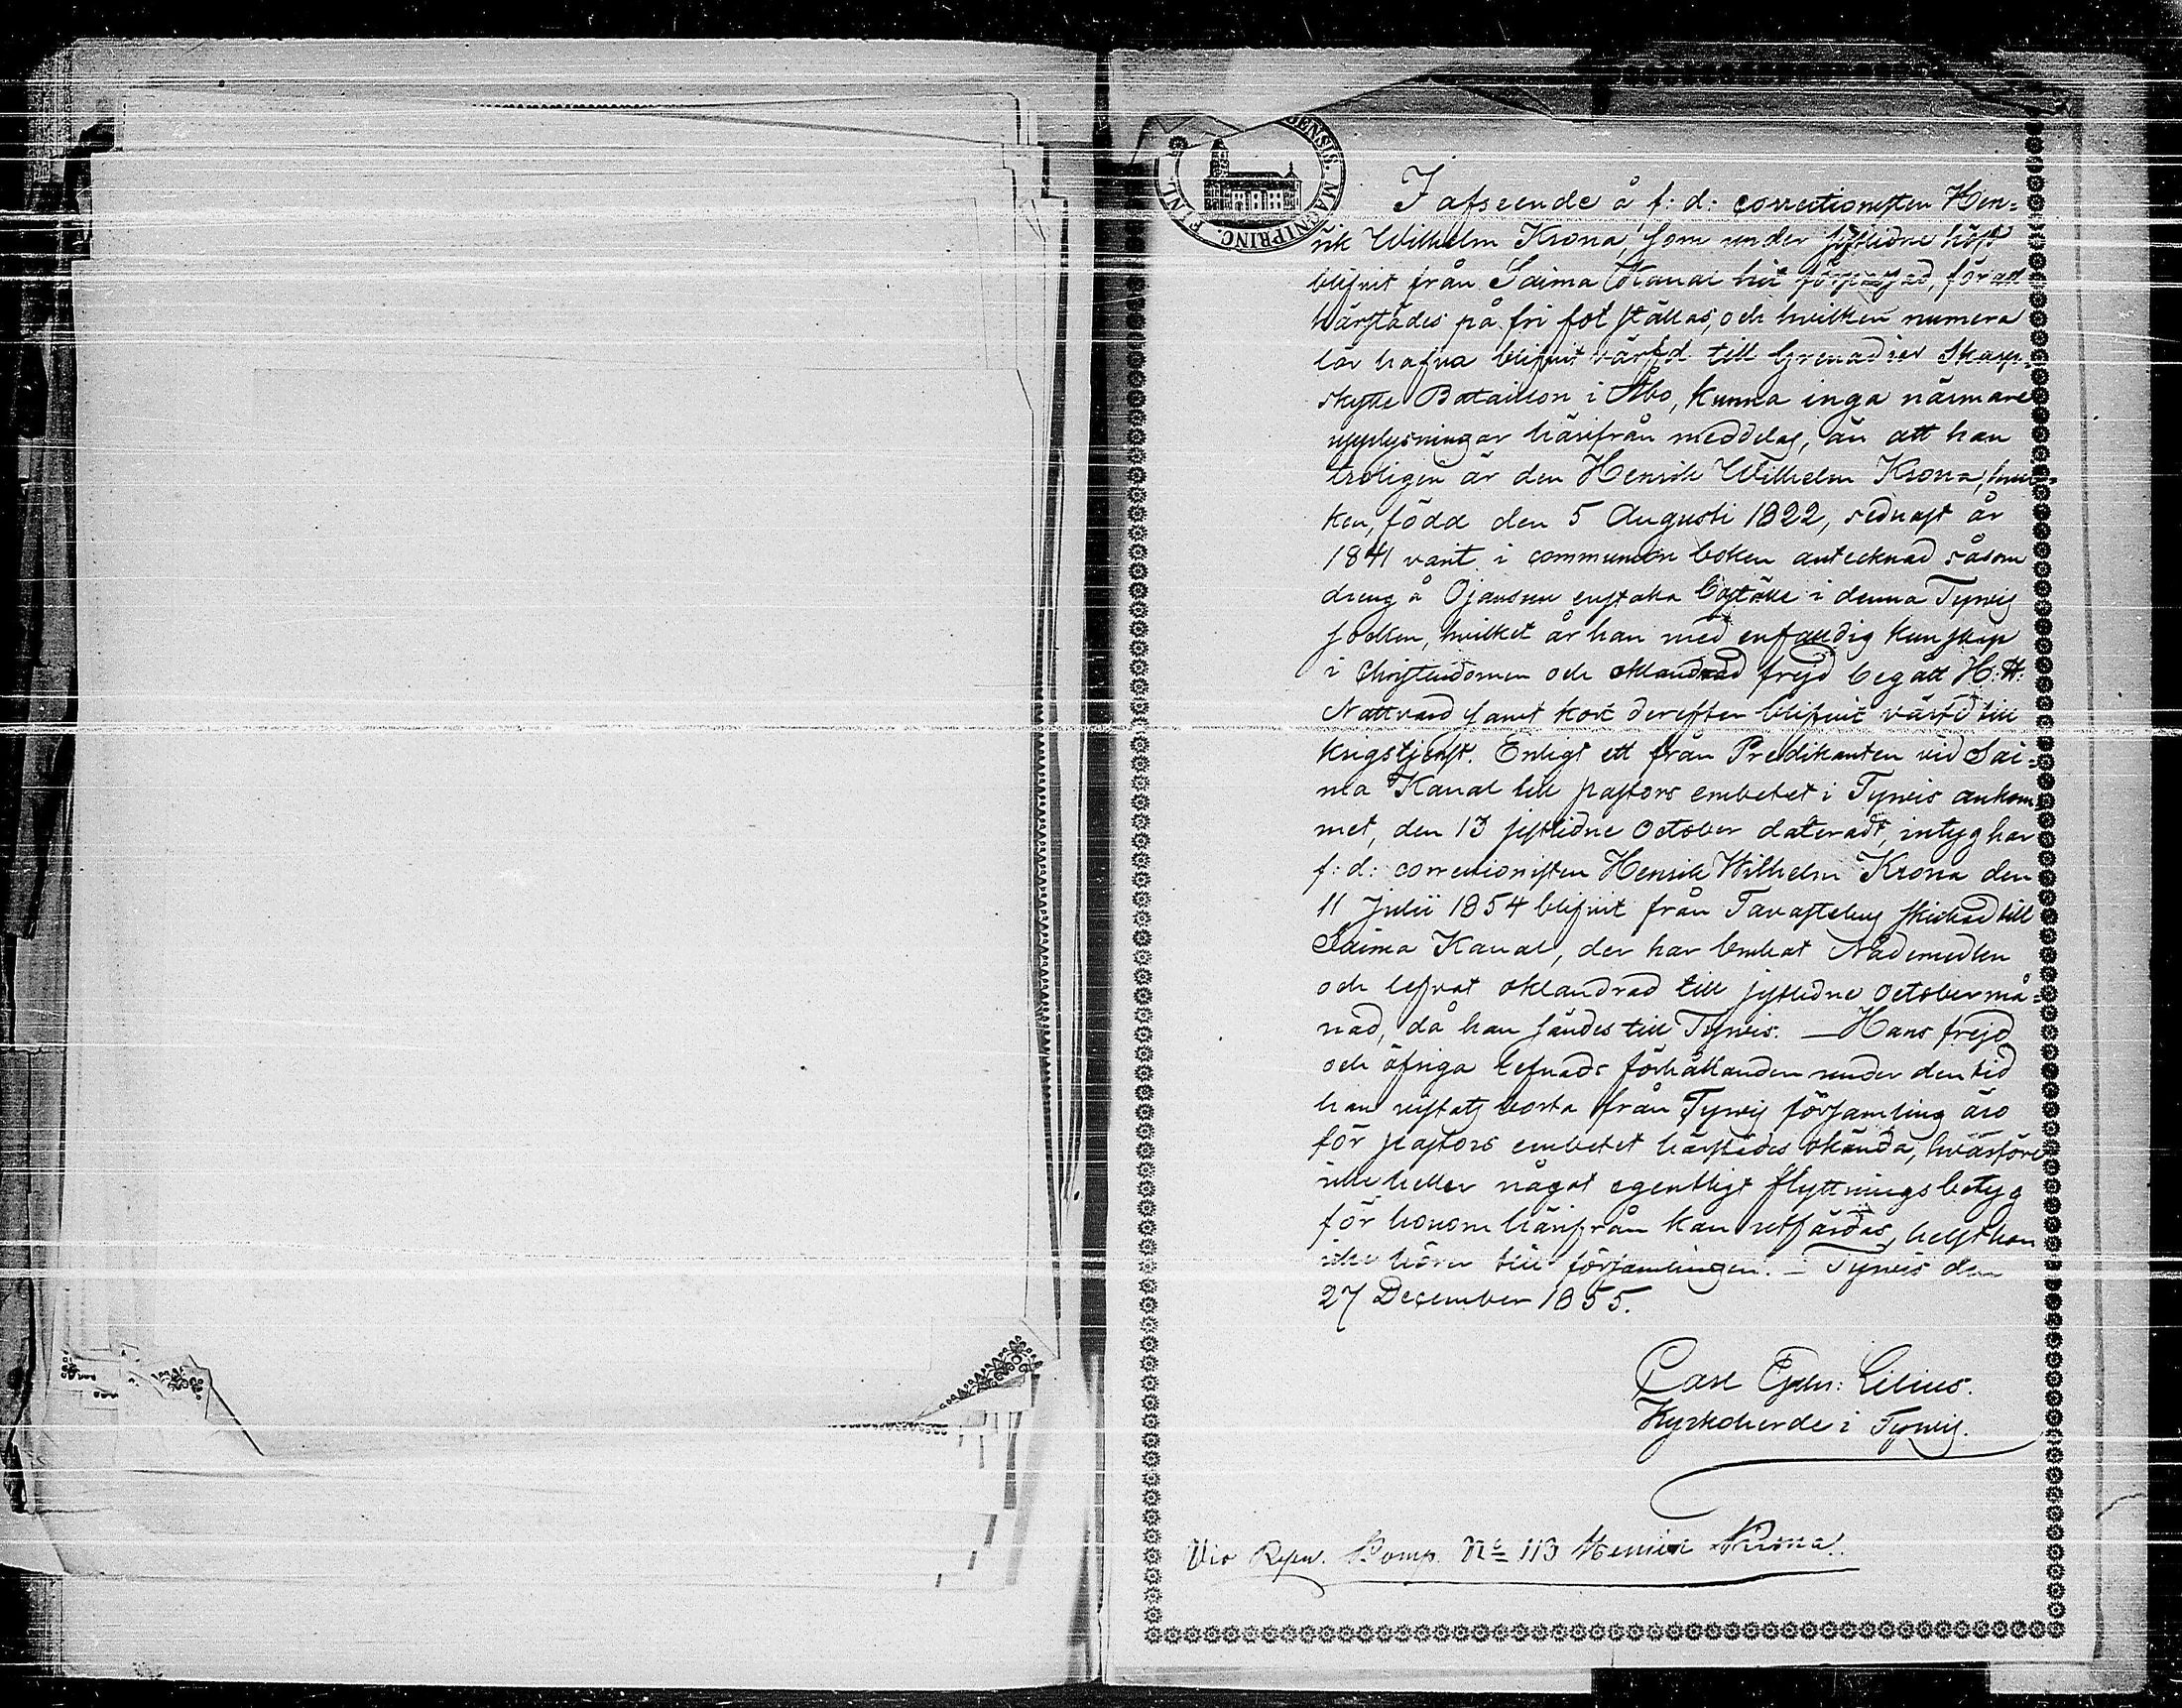 BENSIS. MAGNI PRINC. FINL.
I afseende å f: d: correctionisten Hen=
rik Wilhelm Krona, som under sistlidne höst
blifvit från Saima Kanal hit förpassad, för att
härstädes på fri fot ställas, och hvilken numera
lär hafva blifvit värfd till Grenadier Skarp=
skytte Bataillon i Åbo, kunna inga närmare
upplysningar härifrån meddelas, än att han
troligen är den Henrik Wilhelm Krona, hvil=
ken, född den 5 Augusti 1822, sednast år
1841 varit i communion boken antecknad såsom
dreng å Ojansuu enstaka Boställe i denna Tyrvis
Socken, hvilket år han med enfaldig kunskap
i Christendomen och oklandrad frejd begått H: H:
Nattvard samt kort derefter blifvit värfd till
krigstjenst. Enligt ett från Predikanten vid Sai=
ma Kanal till pastors embetet i Tyrvis ankom=
met, den 13 sistlidne October dateradt, intyg har
f: d: correctionisten Henrik Wilhelm Krona den
11 Julii 1854 blifvit från Tavastehus skickad till
Saima Kanal, der har brukat Nådemedlen
och lefvat oklandrad till sistlidne October må=
nad, då han sändes till Tyrvis. — Hans frejd
och öfriga lefnads förhållanden under den tid
han vistats borta från Tyrvis församling äro
för pastors embetet härstädes okända, hvarföre
icke heller något egentligt flyttningsbetyg
för honom härifrån kan utfärdas, helst han
icke hörer till församlingen. — Tyrvis den
27 December 1855.
Carl Lilius.
Kyrkoherde i Tyrvis.
Komp. No 113 Henrik Krona.